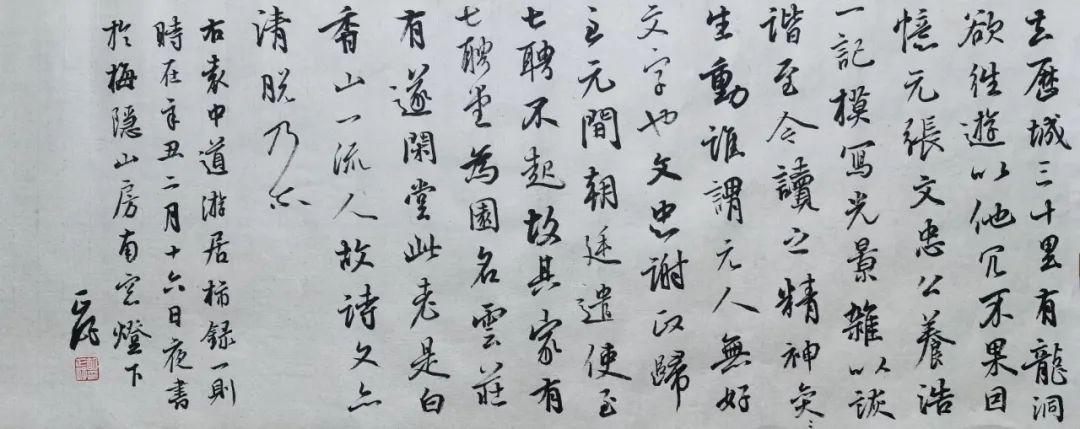 去歷城三十里有龍洞
欲往遊以他冗不果因
憶元張文忠公養浩
一記模寫光景雜以詼
諧至今讀之精神奕〻
生動誰謂元人無好
文字也文忠謝政歸
至元間朝廷遣使至
七聘不起故其家有
七聘堂為園名雲莊
有遂閑堂此老是白
香山一流人故詩文亦
清脫乃尔
右袁中道游居柿録一則
時在辛丑二月十六日夜書
於梅隱山房南窗燈下